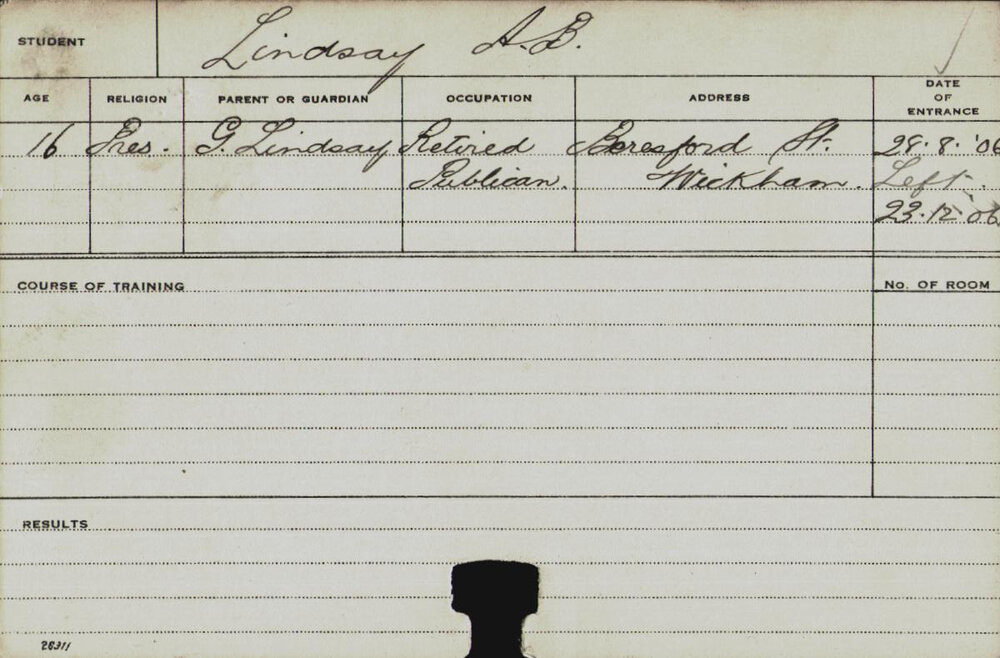 STUDENT Lindsay A.B.
AGE RELIGION PARENT OR GUARDIAN OCCUPATION ADDRESS DATE OF ENTRANCE
16 Pres. G. Lindsay Retired Beresford St. 28.8.'06
Publican. Wickham. Left.
23.12.'06
COURSE OF TRAINING No. OF ROOM
RESULTS
26311